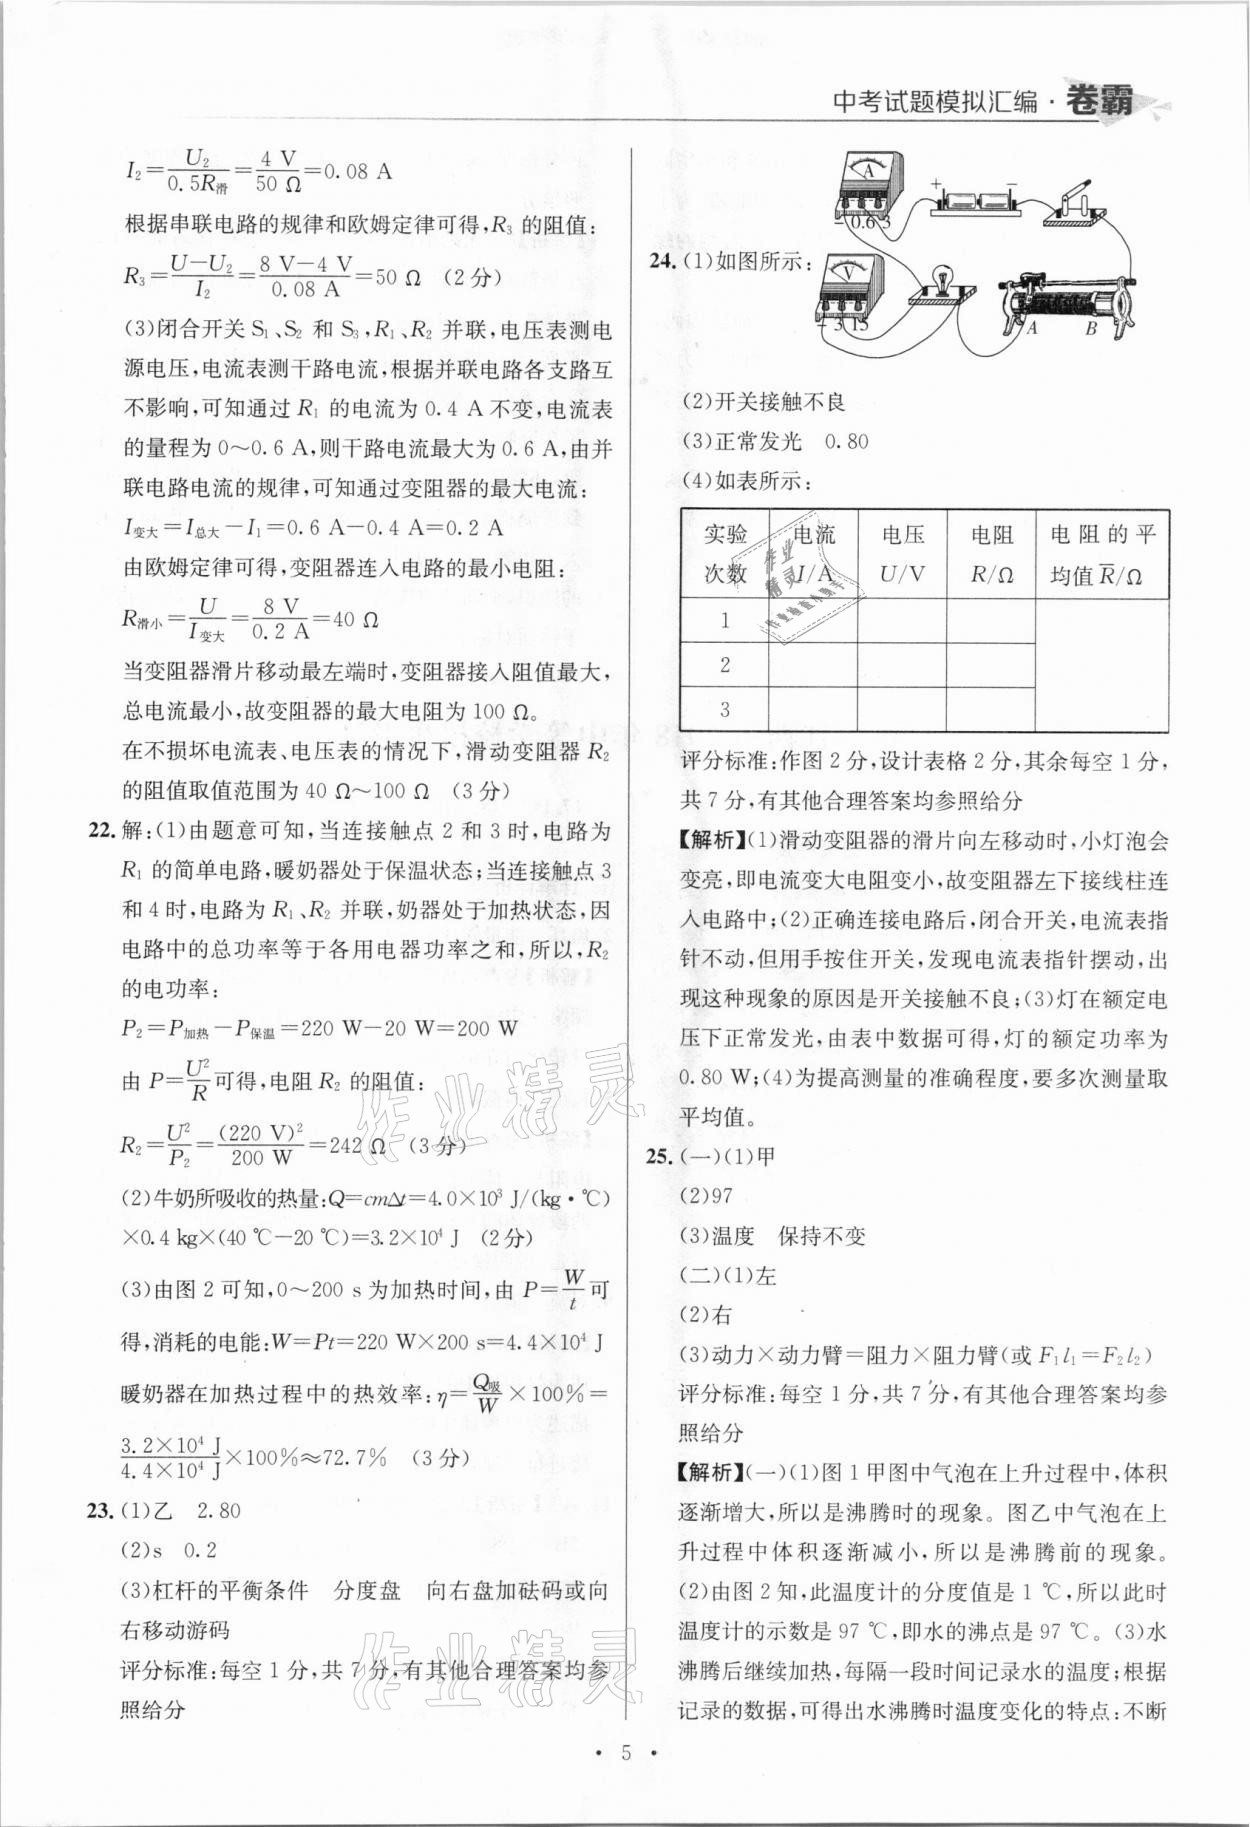 中考试题模拟汇编·卷霸
I₂=U₂/0.5R滑=4 V/50 Ω=0.08 A
根据串联电路的规律和欧姆定律可得,R₃ 的阻值:
R₃=U−U₂/I₂=8 V−4 V/0.08 A=50 Ω (2分)
(3)闭合开关 S₁、S₂ 和 S₃,R₁、R₂ 并联,电压表测电
源电压,电流表测干路电流,根据并联电路各支路互
不影响,可知通过 R₁ 的电流为 0.4 A 不变,电流表
的量程为 0～0.6 A,则干路电流最大为 0.6 A,由并
联电路电流的规律,可知通过变阻器的最大电流:
I变大=I总大−I₁=0.6 A−0.4 A=0.2 A
由欧姆定律可得,变阻器连入电路的最小电阻:
R滑小=U/I变大=8 V/0.2 A=40 Ω
当变阻器滑片移动最左端时,变阻器接入阻值最大,
总电流最小,故变阻器的最大电阻为 100 Ω。
在不损坏电流表、电压表的情况下,滑动变阻器 R₂
的阻值取值范围为 40 Ω～100 Ω (3分)
22.解:(1)由题意可知,当连接触点 2 和 3 时,电路为
R₁ 的简单电路,暖奶器处于保温状态;当连接触点 3
和 4 时,电路为 R₁、R₂ 并联,奶器处于加热状态,因
电路中的总功率等于各用电器功率之和,所以,R₂
的电功率:
P₂=P加热−P保温=220 W−20 W=200 W
由 P=U²/R可得,电阻 R₂ 的阻值:
R₂=U²/P₂=(220 V)²/200 W=242 Ω (3分)
(2)牛奶所吸收的热量:Q=cmΔt=4.0×10³ J/(kg·℃)
×0.4 kg×(40 ℃−20 ℃)=3.2×10⁴ J (2分)
(3)由图 2 可知,0～200 s 为加热时间,由 P=W/t可
得,消耗的电能:W=Pt=220 W×200 s=4.4×10⁴ J
暖奶器在加热过程中的热效率:η=Q吸/W×100%=
3.2×10⁴ J/4.4×10⁴ J×100%≈72.7% (3分)
23.(1)乙 2.80
(2)s 0.2
(3)杠杆的平衡条件 分度盘 向右盘加砝码或向
右移动游码
评分标准:每空 1 分,共 7 分,有其他合理答案均参
照给分
24.(1)如图所示:
A
− 0.6 3
+ −
V
− 3 15
A B
(2)开关接触不良
(3)正常发光 0.80
(4)如表所示:
实验 电流 电压 电阻 电阻的平
次数 I/A U/V R/Ω 均值R̄/Ω
1
2
3
评分标准:作图 2 分,设计表格 2 分,其余每空 1 分,
共 7 分,有其他合理答案均参照给分
【解析】(1)滑动变阻器的滑片向左移动时,小灯泡会
变亮,即电流变大电阻变小,故变阻器左下接线柱连
入电路中;(2)正确连接电路后,闭合开关,电流表指
针不动,但用手按住开关,发现电流表指针摆动,出
现这种现象的原因是开关接触不良;(3)灯在额定电
压下正常发光,由表中数据可得,灯的额定功率为
0.80 W;(4)为提高测量的准确程度,要多次测量取
平均值。
25.(一)(1)甲
(2)97
(3)温度 保持不变
(二)(1)左
(2)右
(3)动力×动力臂=阻力×阻力臂(或 F₁l₁=F₂l₂)
评分标准:每空 1 分,共 7 分,有其他合理答案均参
照给分
【解析】(一)(1)图 1 甲图中气泡在上升过程中,体积
逐渐增大,所以是沸腾时的现象。图乙中气泡在上
升过程中体积逐渐减小,所以是沸腾前的现象。
(2)由图 2 知,此温度计的分度值是 1 ℃,所以此时
温度计的示数是 97 ℃,即水的沸点是 97 ℃。(3)水
沸腾后继续加热,每隔一段时间记录水的温度;根据
记录的数据,可得出水沸腾时温度变化的特点:不断
作业精灵
作业精灵
作业精灵
·5·